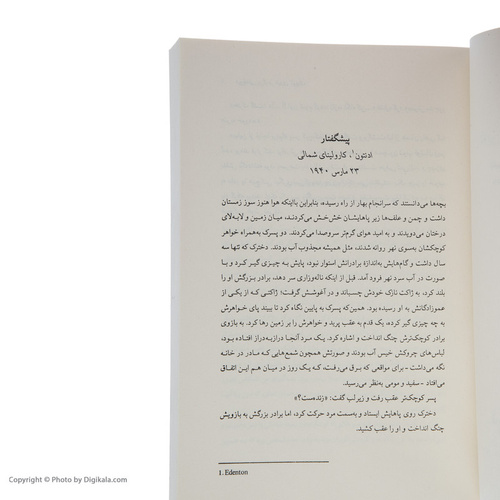 پیشگفتار
ادنتون¹، کارولینای شمالی
۲۳ مارس ۱۹۴۰
بچه‌ها می‌دانستند که سرانجام بهار از راه رسیده، بنابراین بااینکه هوا هنوز سوز زمستان
داشت و چمن و علف‌ها زیر پاهایشان خش‌خش می‌کردند، میان زمین و لابه‌لای
درختان می‌دویدند و به امید هوای گرم‌تر سروصدا می‌کردند. دو پسرک به‌همراه خواهر
کوچکشان به‌سوی نهر روانه شدند، مثل همیشه مجذوب آب بودند. دخترک که تنها سه
سال داشت و گام‌هایش به‌اندازهٔ برادرانش استوار نبود، پایش به چیزی گیر کرد و با
صورت در آب سرد نهر فرود آمد. قبل از اینکه ناله‌وزاری سر دهد، برادر بزرگش او را
بلند کرد، به ژاکت نازک خودش چسباند و در آغوشش گرفت؛ ژاکتی که از یکی از
عموزادگانش به او رسیده بود. همین‌که پسرک به پایین نگاه کرد تا ببیند پای خواهرش
به چه چیزی گیر کرده، یک قدم به عقب پرید و خواهرش را بر زمین رها کرد. به بازوی
برادر کوچک‌ترش چنگ انداخت و اشاره کرد. یک مرد آنجا درازبه‌دراز افتاده بود،
لباس‌های چروکش خیس آب بودند و صورتش همچون شمع‌هایی که مادر در خانه
نگه می‌داشت - برای مواقعی که برق می‌رفت، که یک روز در میان هم این اتفاق
می‌افتاد - سفید و مومی به‌نظر می‌رسید.
پسر کوچک‌تر عقب رفت و زیر لب گفت: «زنده‌ست؟»
دخترک روی پاهایش ایستاد و به‌سمت مرد حرکت کرد، اما برادر بزرگش به بازویش
چنگ انداخت و او را عقب کشید.
1. Edenton
Copyright © Photo by Digikala.com